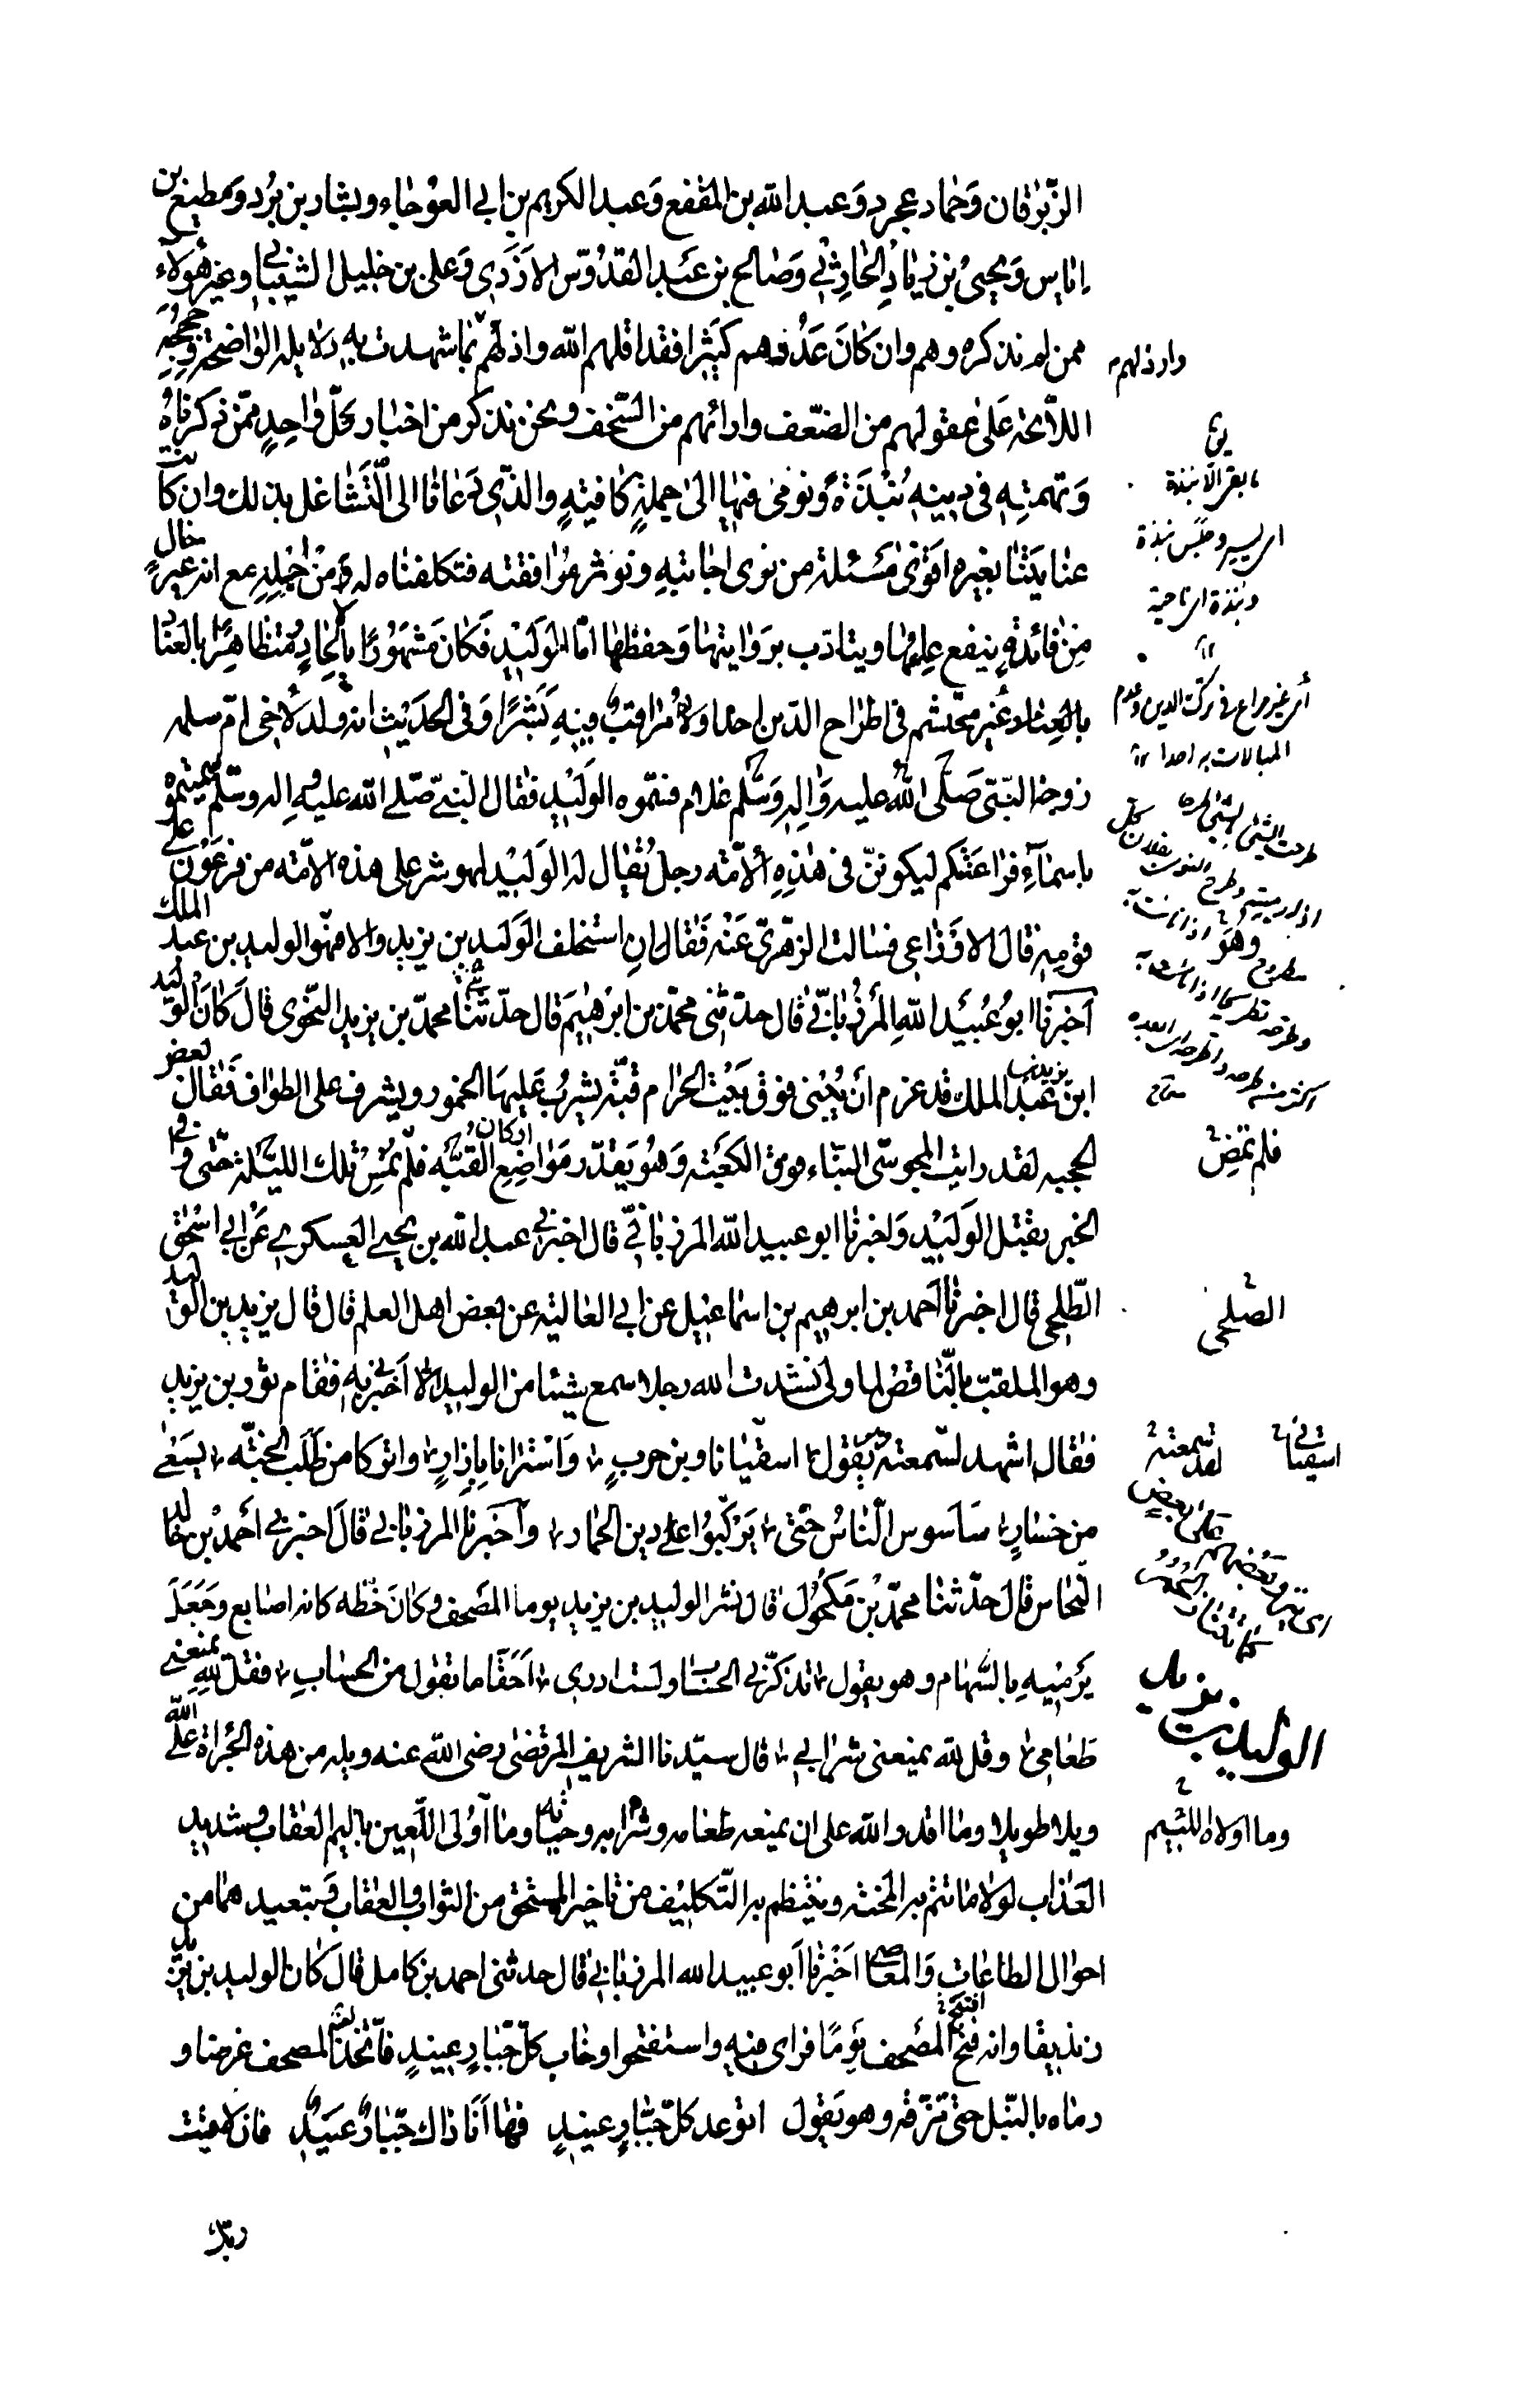 الزّبرقان وَحمّاد عجرد وَعبد الله بن المقفع وَعبد الكريم بن ابى العوجاء وبشار بن بُرد وَمطيع بن
اياس وَيحيىٰ بن زياد الحارثى وَصالح بن عَبد القدّوس الازدى وَعلى بن خليل الشيبانى وغير هؤلاء
ممن لم نذكره وهم وان كانَ عَددهم كثيرا فقد اقلهم الله واذلّهم بما شهدت به دلايله الواضحة وحججه
وارذلهم
اللّائحة عَلىٰ عقولهم من الضّعف وارائهم من السّخف ونحن نذكر من اخبار كلّ واحِدٍ ممّن ذكرناه
وَتهمتِهِ فى دينِهِ نُبذَة وَنومى فيها الىٰ جملةٍ كافيةٍ والذى دَعانا الى التّشاغل بذلك وان كانت
عنايَتنا بغيره اَقوىٰ مَسْئلة من نوى اجابته ونوثر موافقته فتكلفناه له من اجله مع انه غير خال
مِن فائدة ينفع عِلمها ويتادّب بروايتها وَحفظها امّا الوَليد فَكانَ مَشهورًا بالالحاد متظاهرًا بالعناد
بالعناد غير محتشم فى اطراح الدّين احدا وَلا مراقب فيه بَشرًا وَفى الحديث انه ولد لاخى امّ سلمه
زوجة النّبىّ صَلّى اللهُ عليه وَالِهِ وَسَلّم غلام فسمّوه الوَليد فقال النبىّ صَلّى الله عليه واله وسلّم سميتموه
باسمآءِ فراعنتكم ليكوننّ فى هٰذِهِ الأمّته رجل يُقال له الوَليد لهو شر على هذه الامّة من فرعَوْن على
قومِه قالَ الاوزاعى فسالت الزّهرى عَنْه فَقال ان استخلف الوَليد بن يزيد والا فهو الوليد بن عبد الملك
أخبرنا ابو عُبيد اللهِ المرزُبانى قال حدّثنى محمّد بن ابرهيم قال حدّثنا محمّد بن يزيد النّحوى قالَ كانَ الوليد
ابن يزيد بن عبد الملك قد عزم أن يُبنى فوق بَيْت الحرام قبّة يشرب عَليها الخمور ويشرف على الطواف فَقال بعض
الحجبه لقد رايت المجوسىّ البنّاء فوق الكعبَته وَهو يَقدّر مَواضِع اركان القبّه فلم تمسِ تلك الليلة حتى وافى
فلم تمضِ
الخبر بقتل الوَليد وَاخبرنا ابو عبيد الله المرزبانى قال اخبرنى عبد الله بن يحيى العسكرى عَن ابى اسحق
الطّلحى قال اخبرنا احمد بن ابرهيم بن اسماعيل عن ابى العالية عن بعض اهل العلم قال قال يزيد بن الوليد
الصّلحى
وهو الملقب بالنّاقص لما ولى نشدت الله رجلا سمع شيئا من الوليد الا اَخبر به فقام ثور بن يزيد
فقال اشهد لسَمعته يقول اسقيانا وبن حربٍ وَاسْترانا بازارٍ واتركا من طَلَب الجنّه يَسعىٰ
اسقيانى لقد سمعته
من خسارٍ سَاَسوس النّاسُ حتى يَرْكبُوا دين الحمار وأخبرنا المرزبانى قالَ اخبرنى أحمد بن خالد
النّحاس قال حدّثنا محمّد بن مَكحُول قال نشر الوليد بن يزيد يوما المصحف وَكانَ خَطّه كانه اصابع وَجَعَلَ
يَرميِهِ بالسّهام وهو يقول تذكّرنى الحساب ولست ادرى اَحقًّا ما تقول من الحسابِ فقل للهِ يمنعنى
طَعامى وقل لله يمنعنى شرابى قال سيّدنا الشريف المرتضى رضى الله عنه ويله من هذه الجُراة على الله
الوليد بن يزيد
ويلا طويلا وما اقدر الله على ان يمنعه طعامه وشرابه وحياته وما اَوْلى اللّعين باليم العقاب وشديد
وما اولاه للئيم
العَذاب لولا ما تتم به المحنة وينتظم به التّكليف من تاخير المستحق من الثواب والعقاب وَتبعيدهما من
احوال الطاعات وَالمعاصى اَخْبرنا اَبو عبيد الله المرزبانى قال حدثنى احمد بن كامل قالَ كان الوليد بن يزيد
زنديقا وانه فتح المصحف يَومًا فراى فيه واستفتحوا وخاب كلّ جبّارٍ عنيدٍ فاتّخذ المصحف غرضا و
رماه بالنّبل حتى مَزّقه وهو يَقول اتوعد كلّ جبّارٍ عنيدٍ فها اَنا ذاك جبّارٌ عنيدٌ فان لاقيت
ربّك